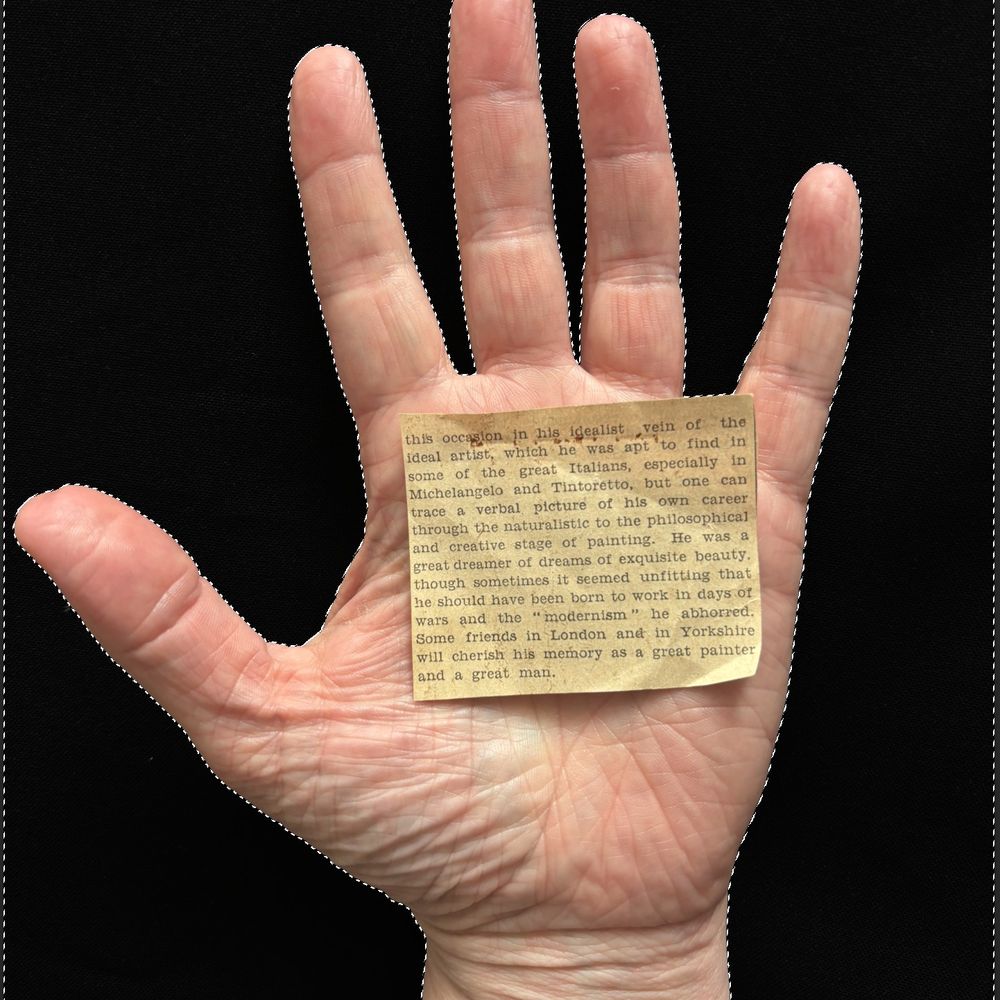 this occasion in his idealist vein of the
ideal artist, which he was apt to find in
some of the great Italians, especially in
Michelangelo and Tintoretto, but one can
trace a verbal picture of his own career
through the naturalistic to the philosophical
and creative stage of painting. He was a
great dreamer of dreams of exquisite beauty,
though sometimes it seemed unfitting that
he should have been born to work in days of
wars and the “modernism” he abhorred.
Some friends in London and in Yorkshire
will cherish his memory as a great painter
and a great man.